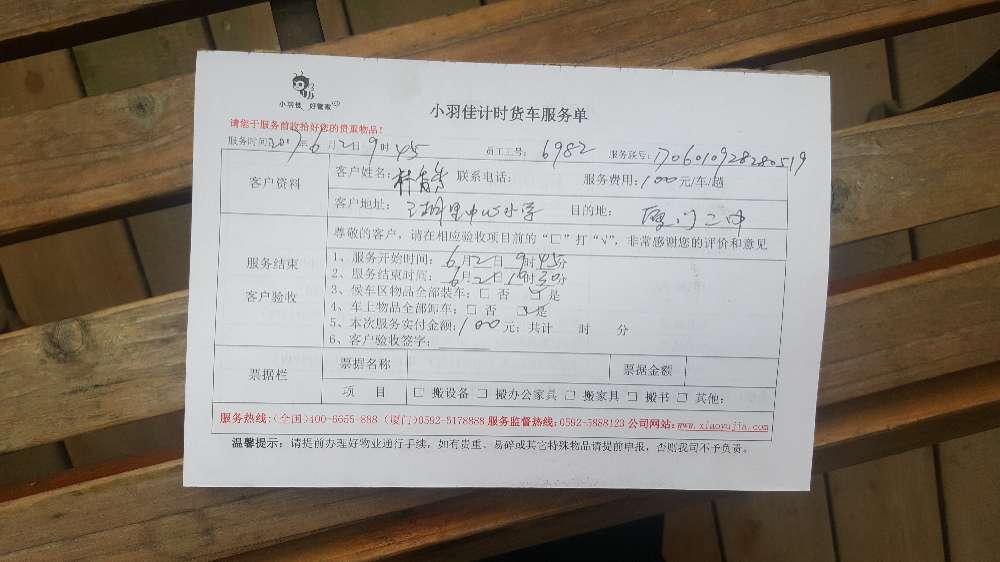 小羽佳 好管家
小羽佳计时货车服务单
请您于服务前收拾好您的贵重物品!
服务时间2017年6月2日9时45 员工工号: 6982 服务联号: 1706010928280519
客户资料
客户姓名: 联系电话: 服务费用: 100元/车/趟
客户地址: 中心小学 目的地: 厦门二中
服务结束
客户验收
尊敬的客户, 请在相应验收项目前的“□”打“√”, 非常感谢您的评价和意见
1、服务开始时间: 6月2日9时45分
2、服务结束时间: 6月2日 时30分
3、候车区物品全部装车: □ 否 ☑ 是
4、车上物品全部卸车: □ 否 ☑ 是
5、本次服务实付金额: 100元; 共计 时 分
6、客户验收签字:
票据栏
票据名称 票据金额
项 目 □ 搬设备 □ 搬办公家具 □ 搬家具 □ 搬书 □ 其他:
服务热线:(全国)400-6655-888 (厦门)0592-5178888 服务监督热线:0592-5888123 公司网站:www.xiaoyujia.com
温馨提示: 请提前办理好物业通行手续, 如有贵重、易碎或其它特殊物品请提前申报, 否则我司不予负责。